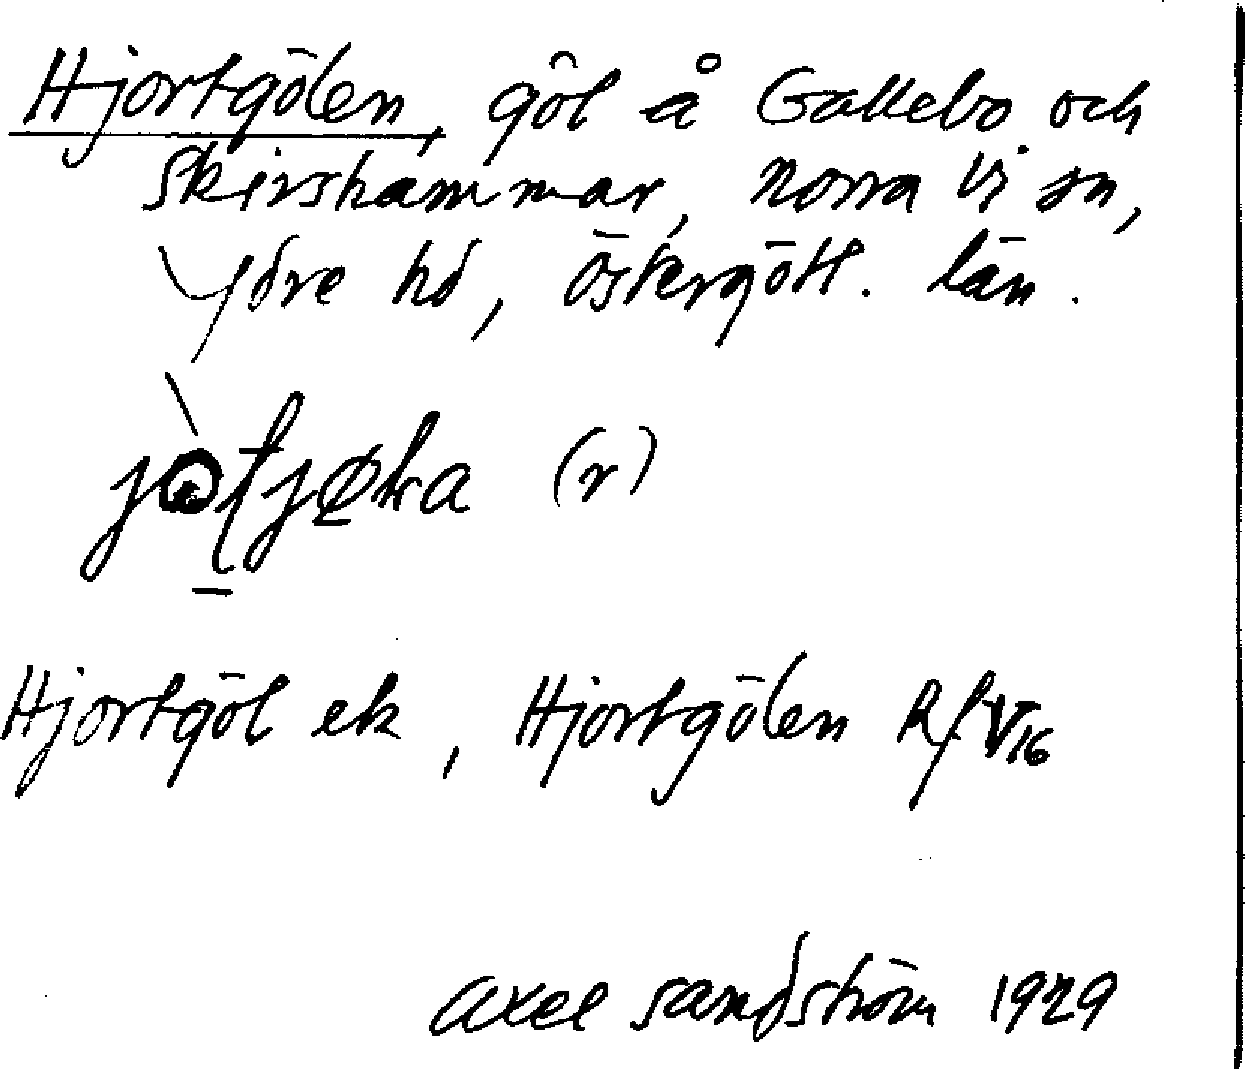 Hjortgölen, göl å Gallebo och
Skirshammar, Norra Vi sn,
Ydre hd, Östergötl. län.
(r)
Hjortgöl ek, Hjortgölen Rf V16
Axel Sandström 1929